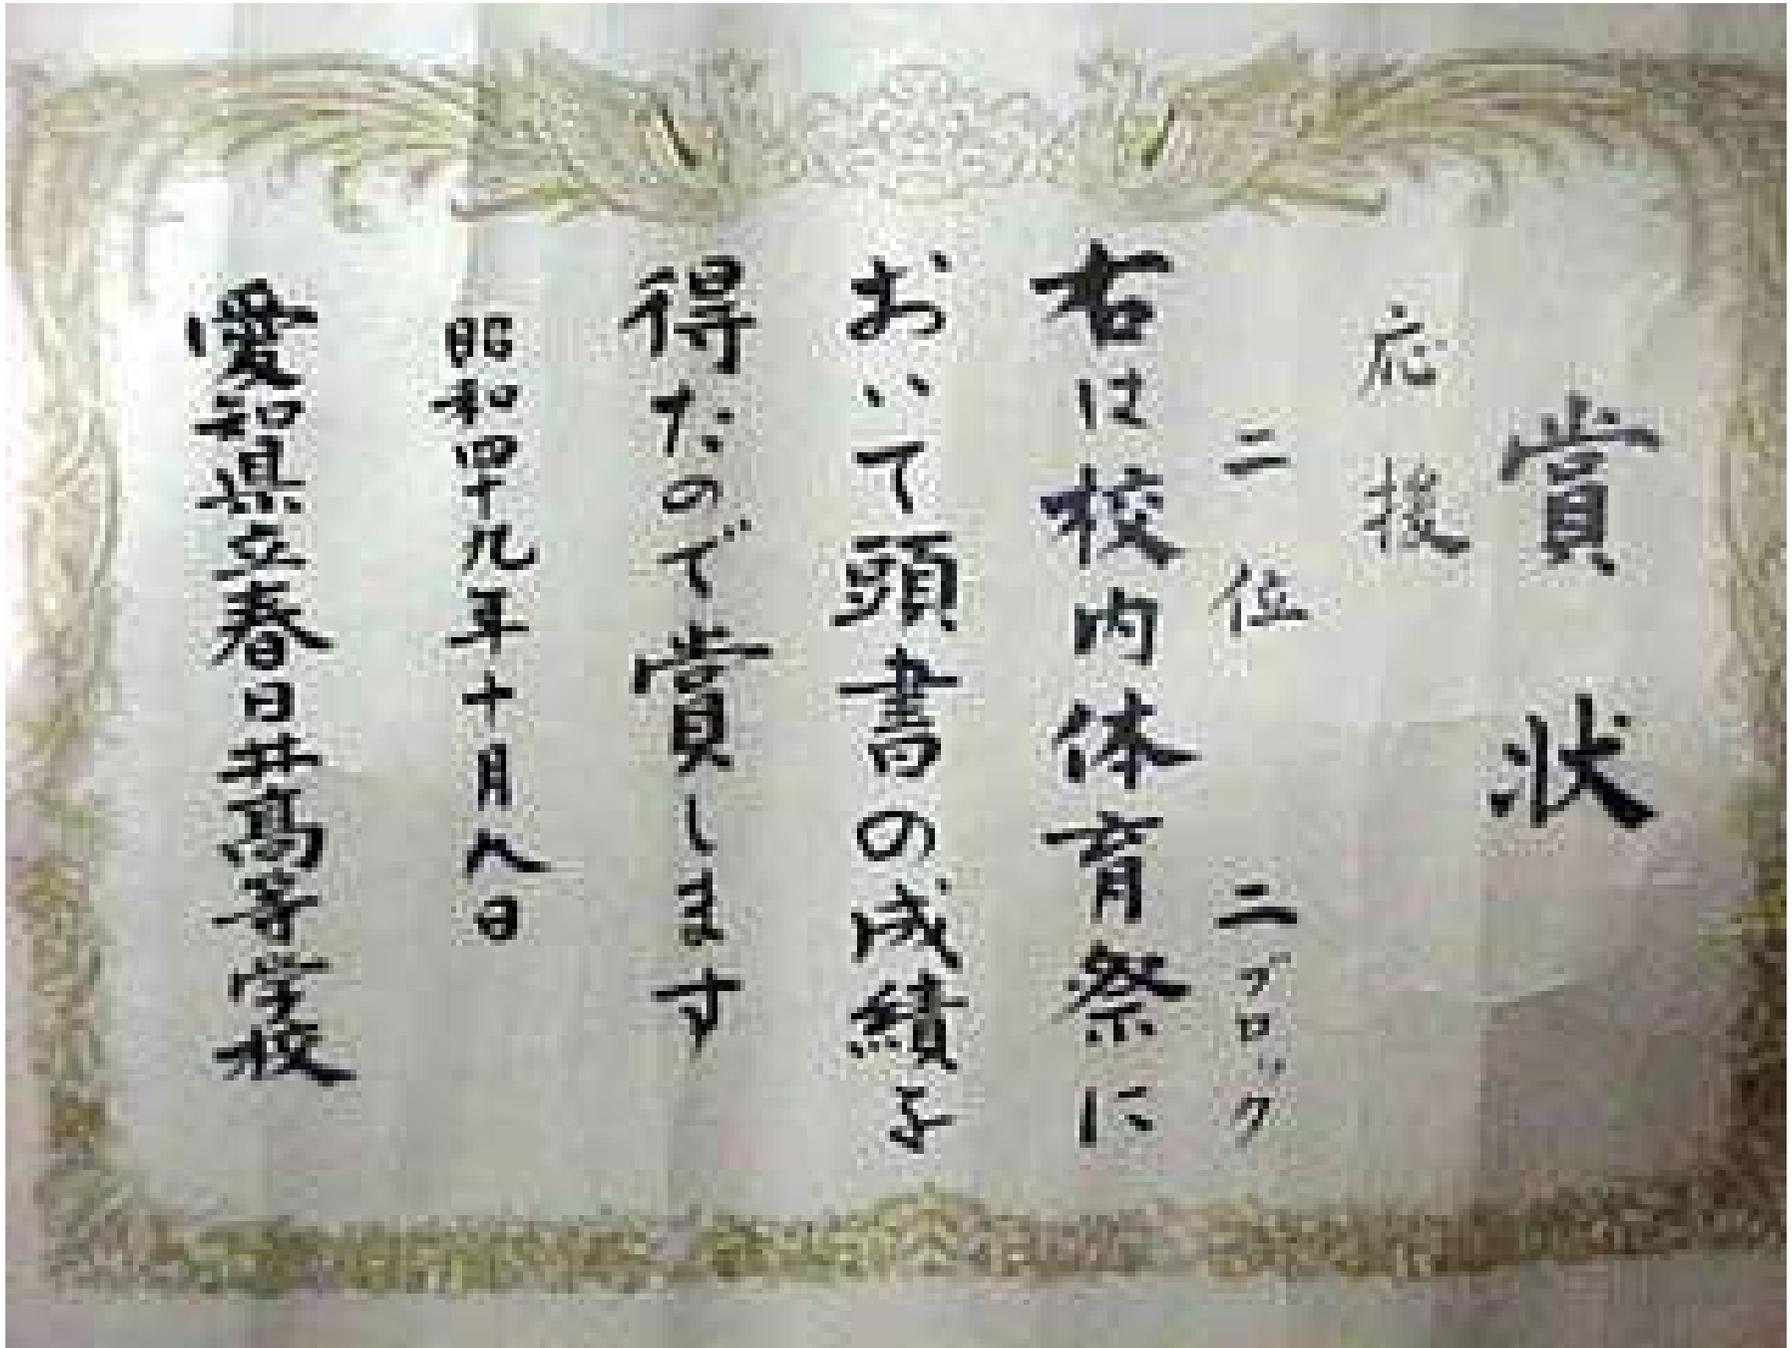 賞状
応援
二位 二ブロック
右は校内体育祭に
おいて頭書の成績を
得たので賞します
昭和四十九年十月八日
愛知県立春日井高等学校